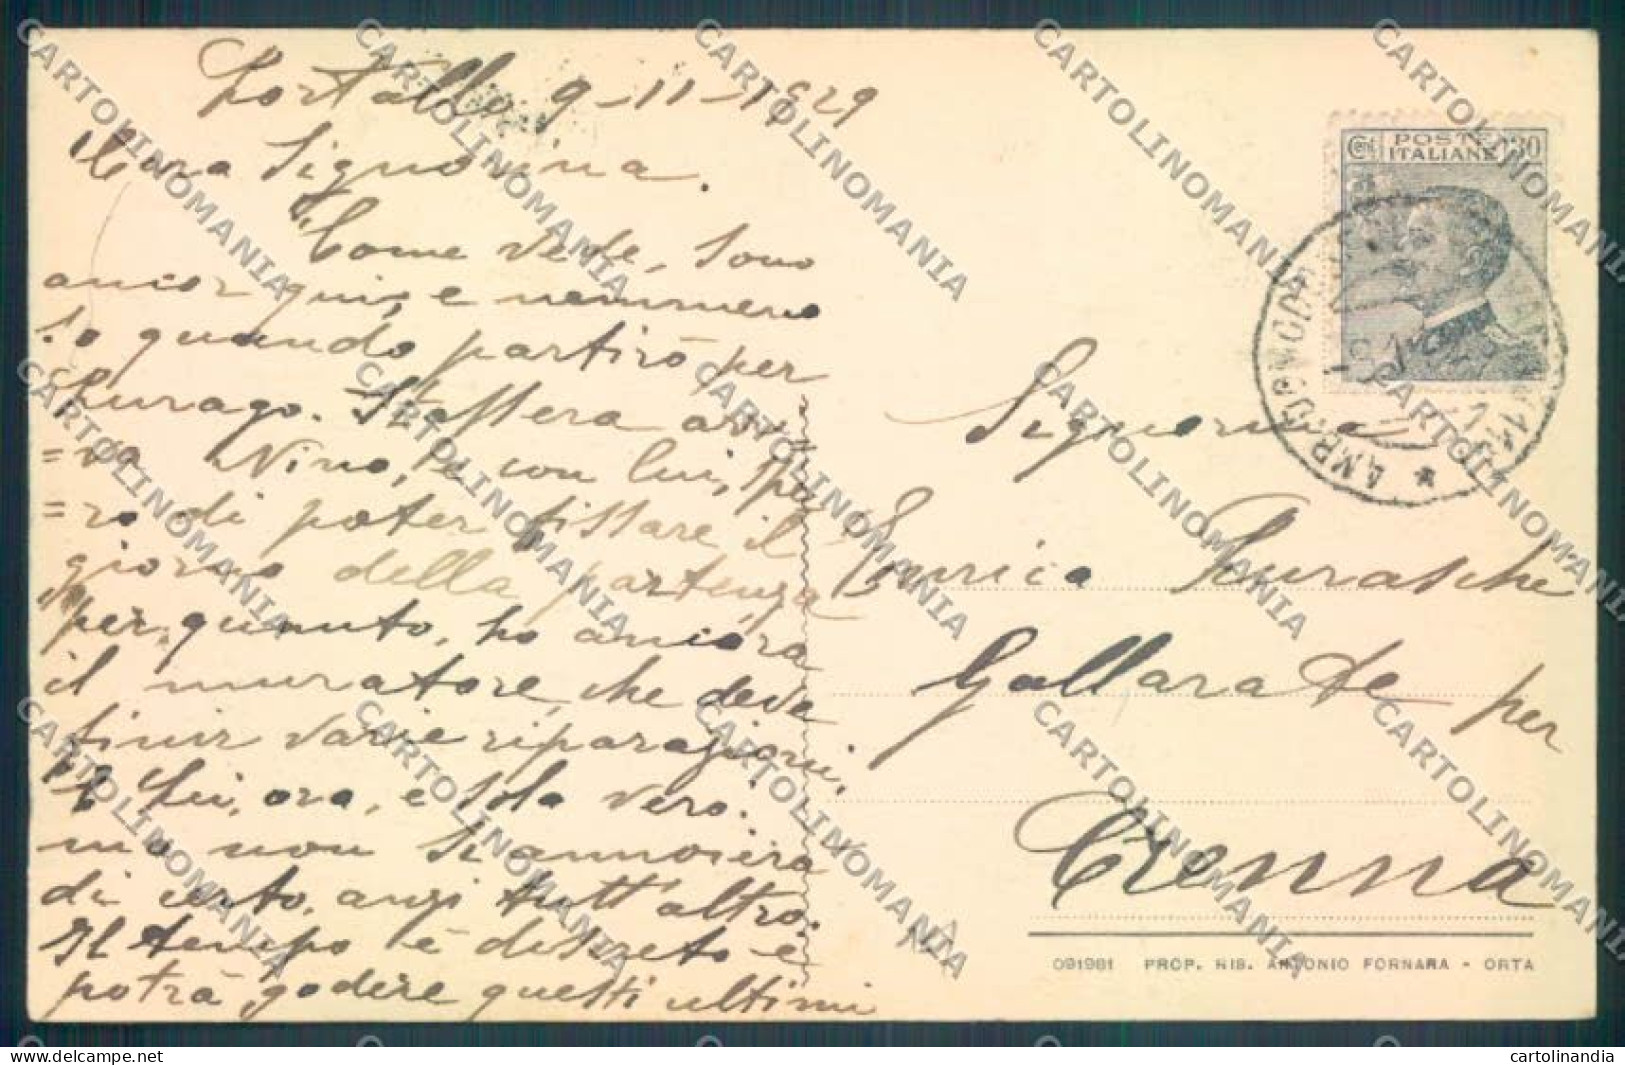 Portallo 9-11-1929
Cara Signorina.
Come vede, sono
ancor qui, e nemmeno
so quando partirò per
Lurago. Stassera arri=
=va Nino, e con lui, spe
=ro di poter fissare il
giorno della partenza
per quanto, ho ancora
il muratore, che deva
finir varie riparazioni.
E Lei, ora, è sola vero.
ma non si annoierà
di certo, anzi tutt'altro.
Il tempo è discreto e
potrà godere questi ultimi
POSTE
Cent ITALIANE 30
AMB. DOMODOSSOLA
Signorina
Enrica
Gallarate per
Crenna
091981 PROP. RIS. ANTONIO FORNARA - ORTA
CARTOLINOMANIA
https://www.delcampe.net
cartolinandia